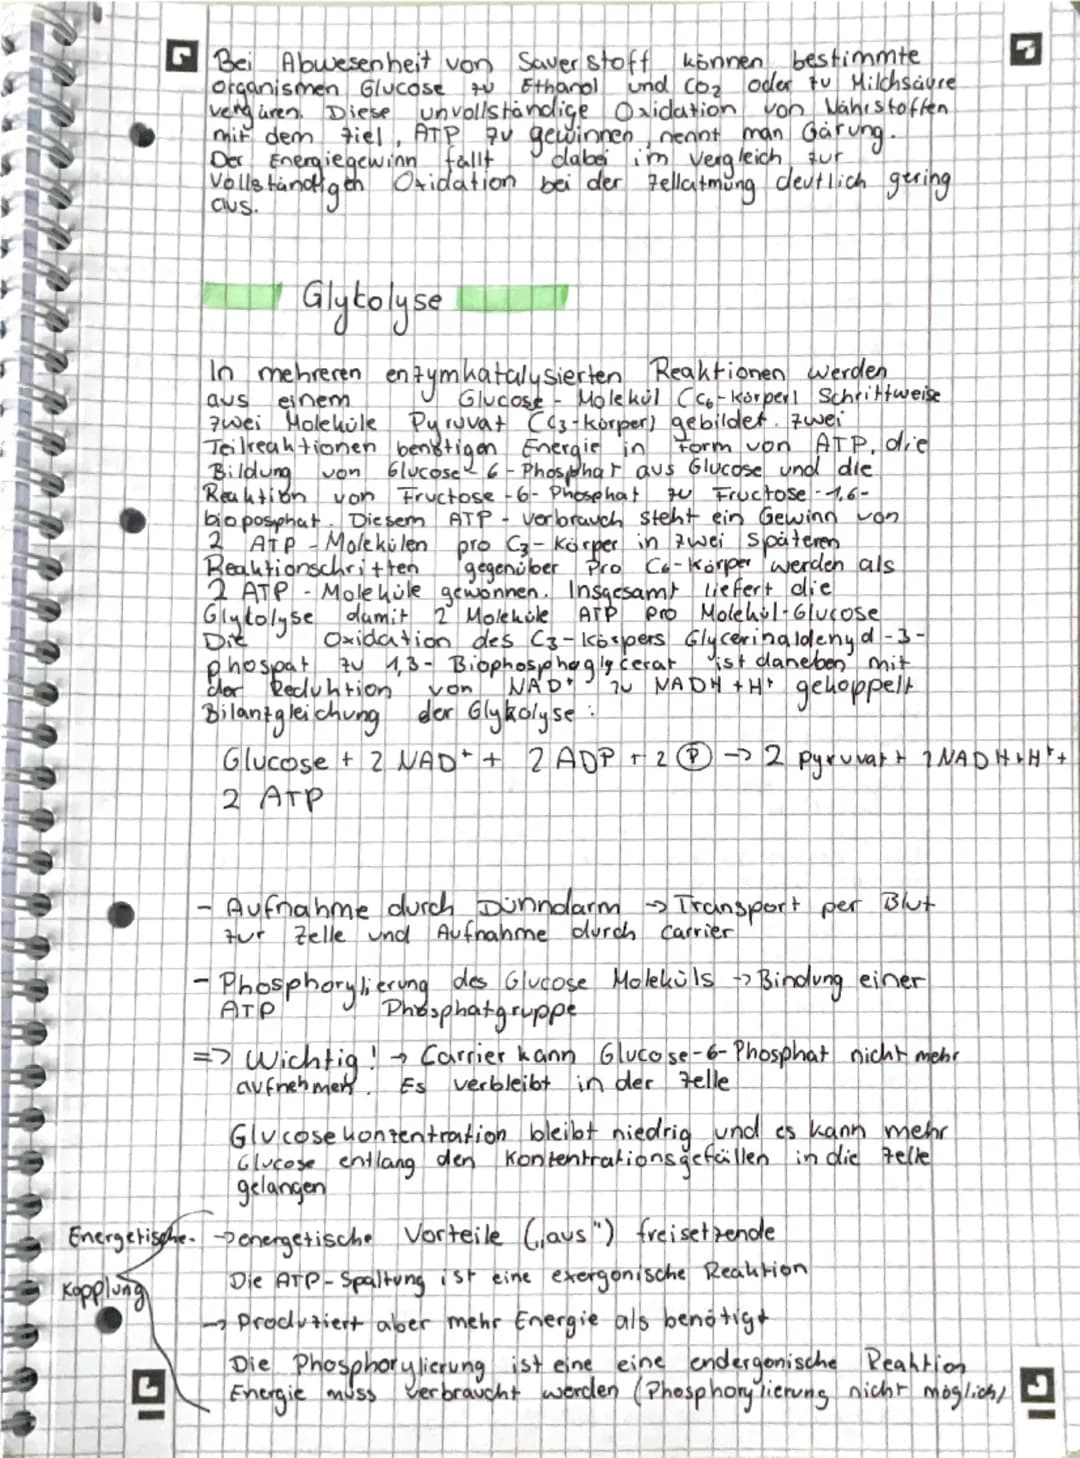 Bei Abwesenheit von Sauerstoff können bestimmte
Organismen Glucose zu Ethanol und CO2 oder zu Milchsäure
vergären. Diese unvollständige Oxidation von Nährstoffen
mit dem Ziel, ATP zu gewinnen, nennt man Gärung.
Der Energiegewinn fällt dabei im Vergleich zur
vollständigen Oxidation bei der Zellatmung deutlich gering
aus.
Glykolyse
In mehreren enzymkatalysierten Reaktionen werden
aus einem Glucose - Molekül (C6-Körper) Schrittweise
zwei Moleküle Pyruvat (C3-Körper) gebildet. Zwei
Teilreaktionen benötigen Energie in Form von ATP, die
Bildung von Glucose - 6 - Phosphat aus Glucose und die
Reaktion von Fructose -6- Phosphat zu Fructose -1,6-
bioposphat. Diesem ATP - Verbrauch steht ein Gewinn von
2 ATP - Molekülen pro C3- Körper in zwei späteren
Reaktionschritten gegenüber Pro C6-Körper werden als
2 ATP - Moleküle gewonnen. Insgesamt liefert die
Glykolyse damit 2 Moleküle ATP pro Molekül-Glucose
Die Oxidation des C3-Körpers Glycerinaldehyd -3-
phospat zu 1,3- Biophosphoglycerat ist daneben mit
der Reduktion von NAD+ zu NADH + H+ gekoppelt
Bilanzgleichung der Glykolyse:
Glucose + 2 NAD+ + 2 ADP + 2 Ⓟ -> 2 Pyruvat + 2 NADH+H+ +
2 ATP
- Aufnahme durch Dünndarm -> Transport per Blut
zur Zelle und Aufnahme durch Carrier
- Phosphorylierung des Glucose Moleküls -> Bindung einer
ATP Phosphatgruppe
=> Wichtig! -> Carrier kann Glucose-6-Phosphat nicht mehr
aufnehmen. Es verbleibt in der Zelle
Glucosekonzentration bleibt niedrig und es kann mehr
Glucose entlang den Konzentrationsgefällen in die Zelle
gelangen
Energetische- -> energetische Vorteile („aus") freisetzende
Die ATP-Spaltung ist eine exergonische Reaktion
Kopplung
-> Produziert aber mehr Energie als benötigt
Die Phosphorylierung ist eine eine endergonische Reaktion
Energie muss verbraucht werden (Phosphorylierung nicht möglich)